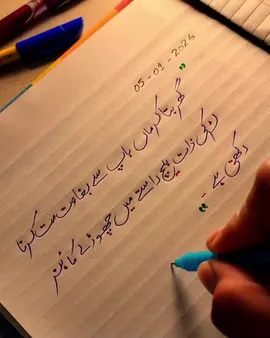 05-01-2026
"گھر بتا کر ماں باپ سے بغاوت مت کرنا
لڑکی ذات بیچ راستے میں چھوڑنے کا ہنر
رکھتی ہے۔"